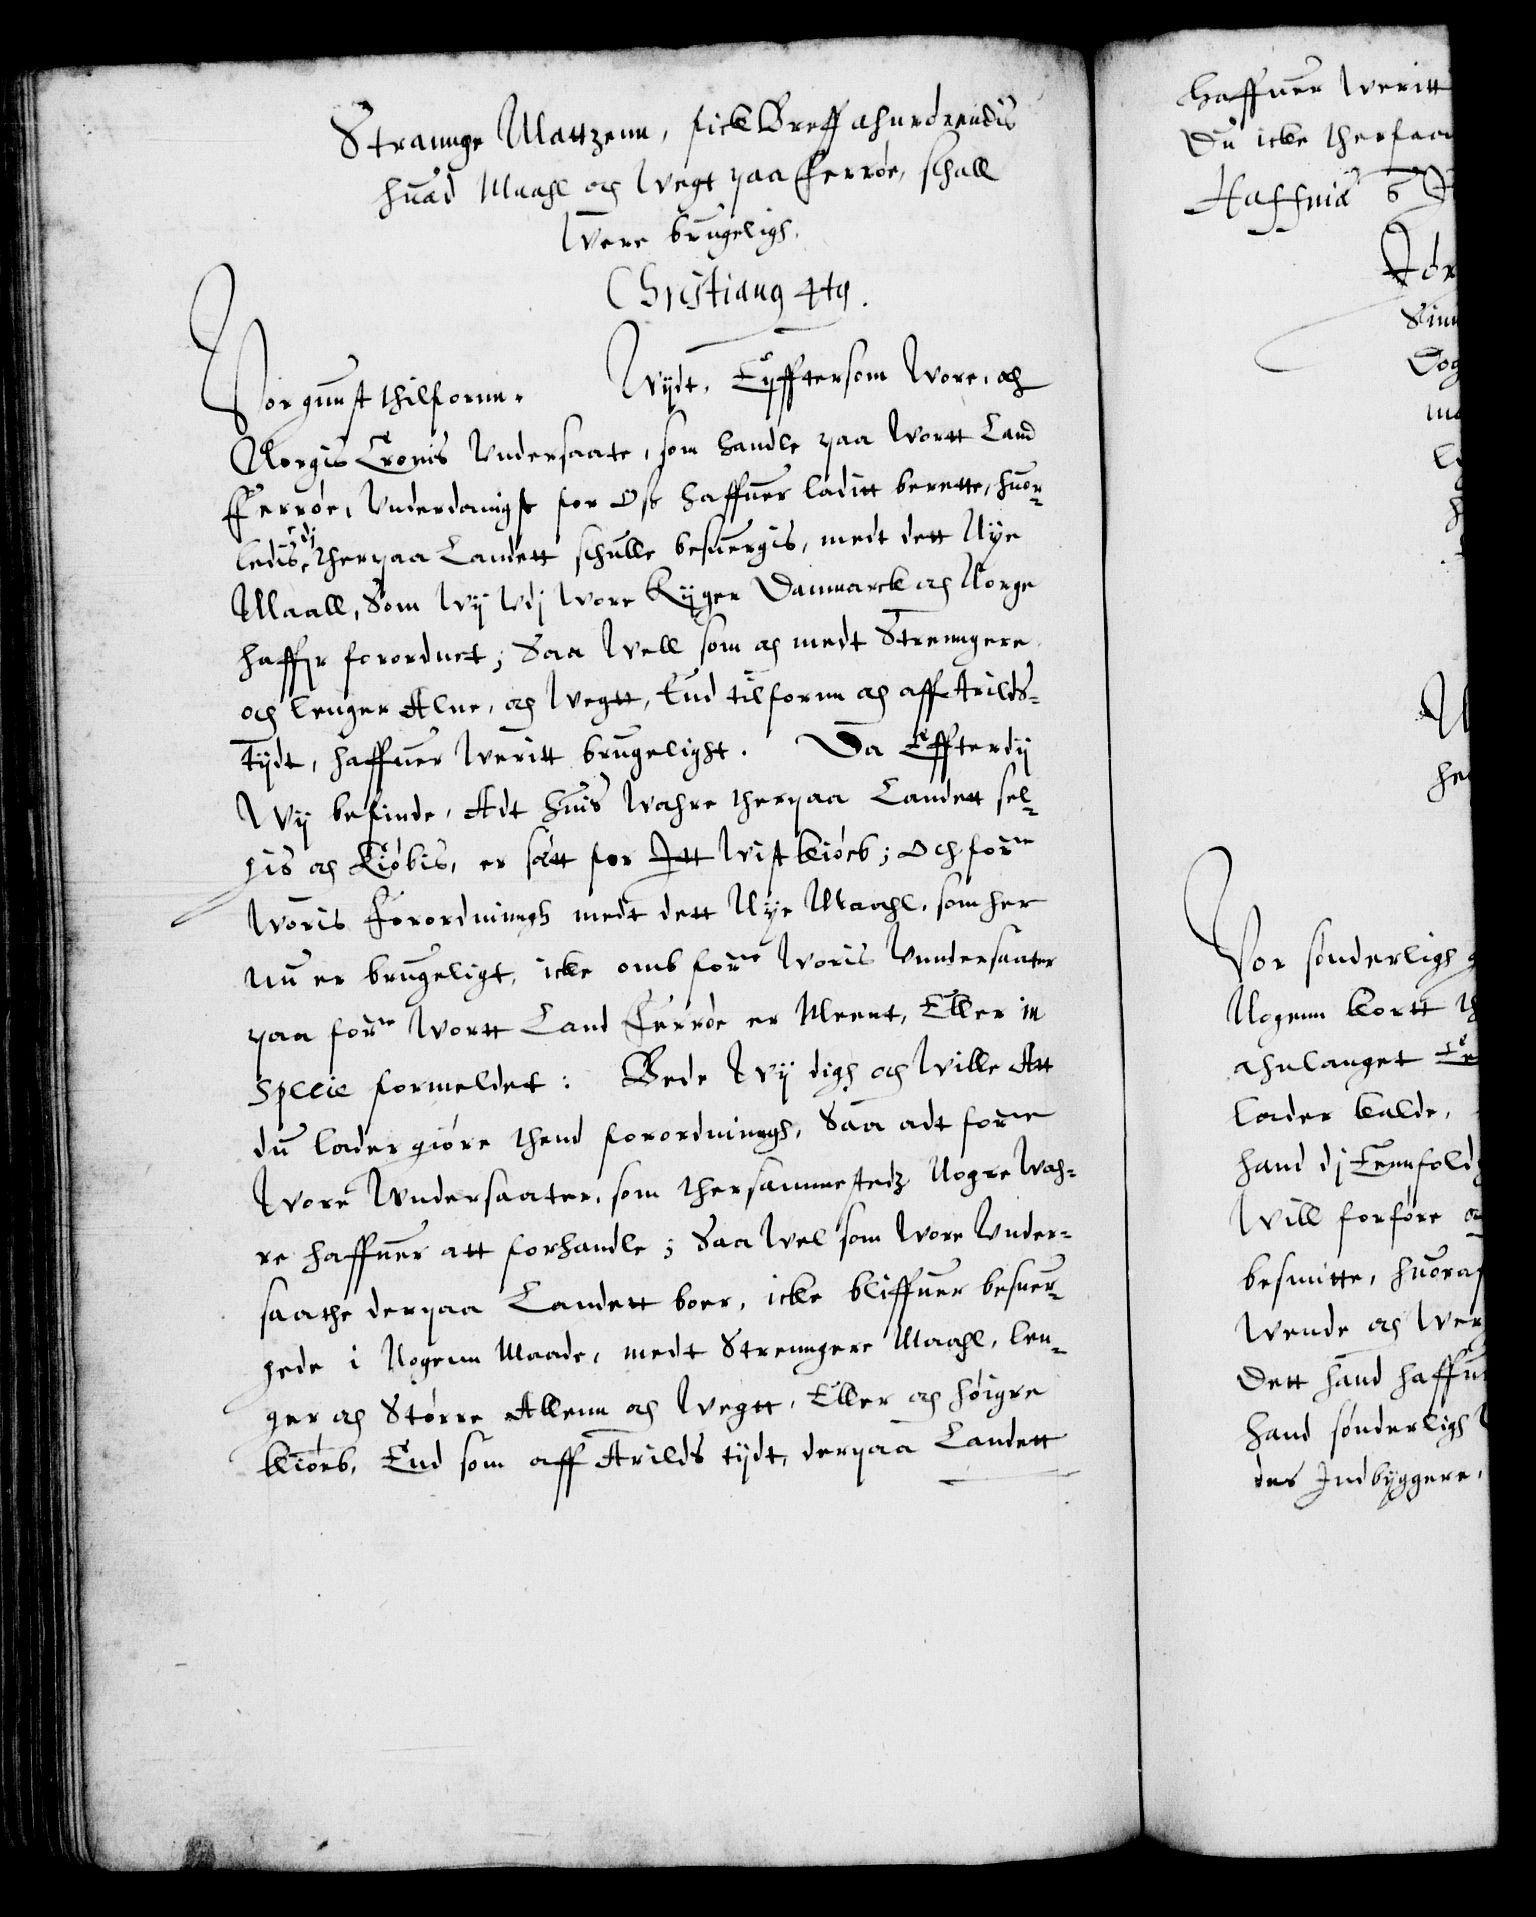 Strannge Mattzenn, fick Breff ahnrdrendis
huad Maahl och Wegt paa Ferrøe, schall
Were brugeligh.
Christianq 4tq.
Vor gunst thilfornn. Wydt, Eyfftersom Wore, och
Norgis Cronis Undersaate, som handle paa Wortt Land
Fferrøe, Underdanigst for Oss haffuer laditt berette, huor-
ledis, dj therpaa Landett schulle besuergis, medt dett Nye
Maall, Som Wij Udj Wore Ryger Danmarck och Norge
haffr forordnet; Saa Well som och medt Strenngere
och lenger Alne, och Wegtt, End tilfornn och aff Arilds-
Tydt, haffuer Weritt brugelight. Da Effterdij
Wij befinde, Adt huis Wahre therpaa Landett sel-
gis och Kiøbis, er sätt for Itt Wist kiøeb; Och forne
Woris Forordninngh medt dett Nye Maahl, som her
nu er brugeligt, icke omb forne Woris Unndersaater
paa forne Wortt Land Fferrøe er Meent, Eller in
Specie formeldet: Bede Wij digh och Wille Att
du lader giøre thend forordninngh, Saa adt forne
Wore Undersaater, som thersammestedz Nogre Wah-
re haffuer att forhandle; Saa Wel som Wore Under-
saathe derpaa Landett boer, icke bliffuer besuer-
gede i Nogenn Maade, medt Strenngere Maahl, len-
ger och Større Allenn och Wegtt, Eller och høigre
kiøeb, End som aff Arilds tydt, derpaa Landett
haffuer Weritt
Du icke therfaar
Haffniæ 6
Vor sønderligh
Nogenn kortt
ahnlanget
lader kalde,
hand dj Eennfold
Will forføre
besmitte, huoraf
Wende och
Dett hand
hand sønderligh
des Indbyggere,